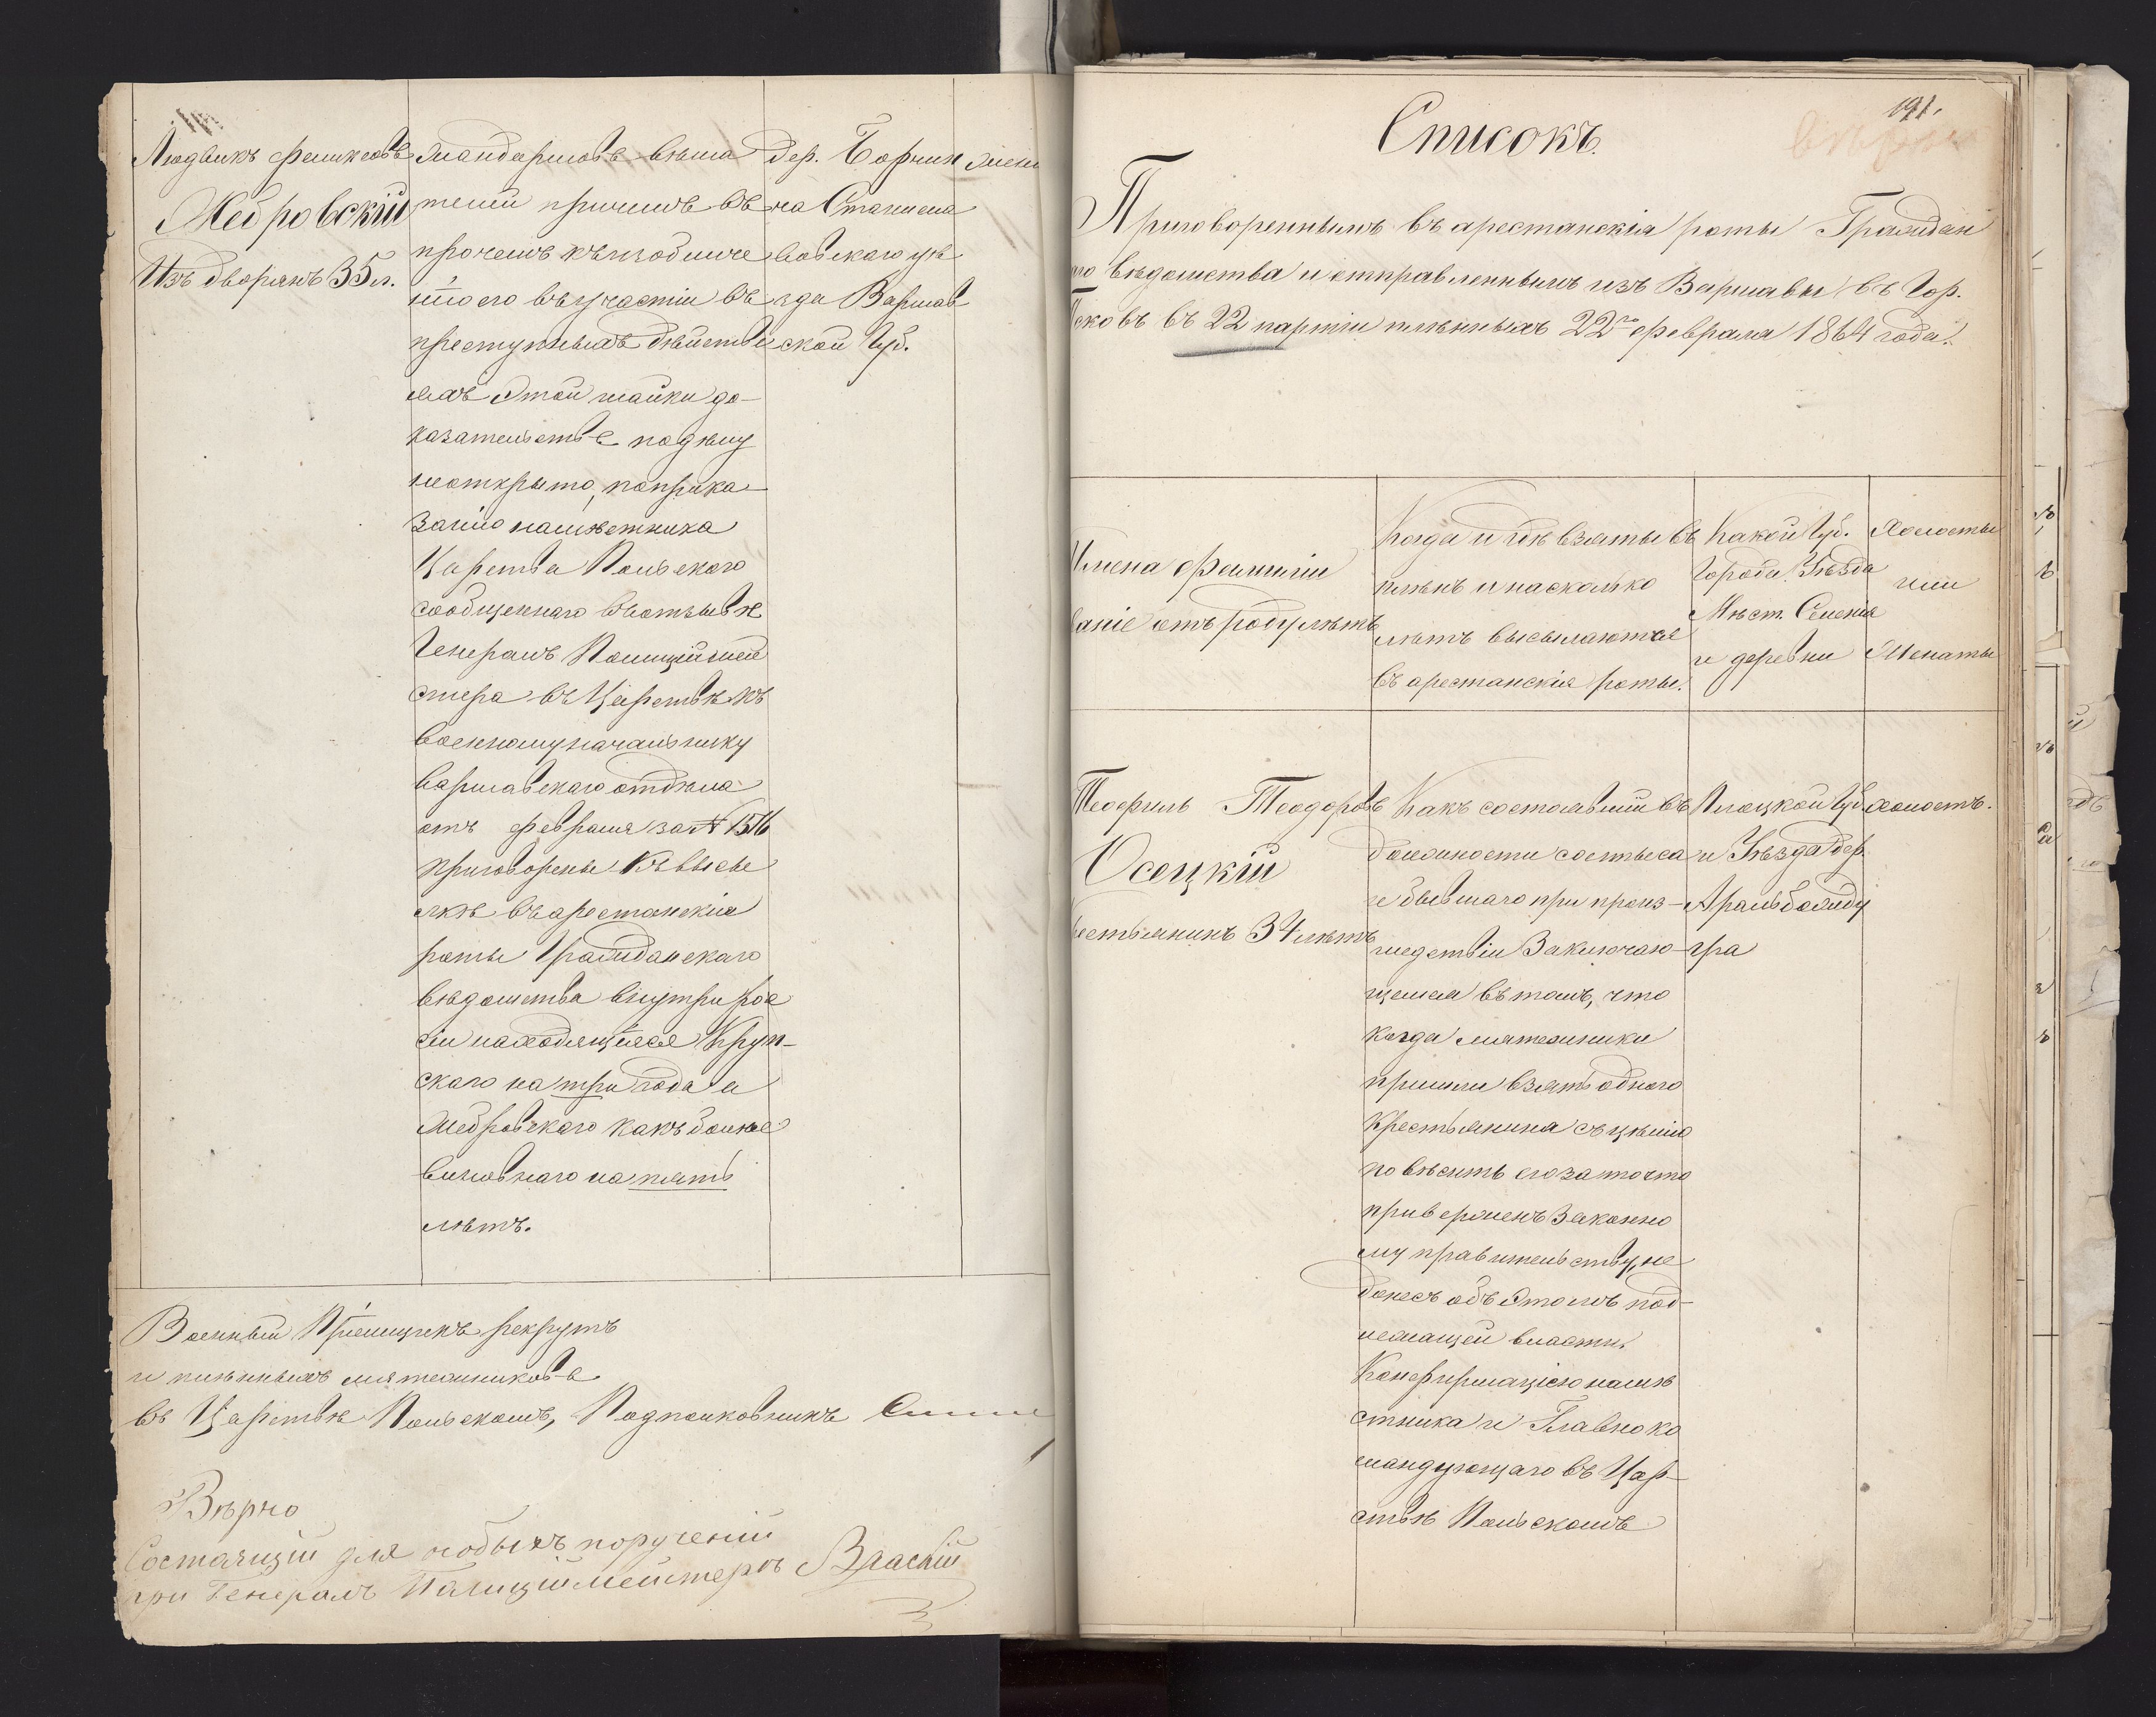 Людвикъ Феликсовъ
Мѣдровскій
Изъ дворянъ 35 л.
жандармовъ вѣша
телей причемъ въ
прочемъ къ изобличе
нію его въ участіи въ
преступныхъ дѣйстві
яхъ этой шайки до-
казательствъ къ нему
не открыто, по прика
занію намѣстника
Царства Польскаго
сообщеннаго въ отзывѣ
Генералъ Полиціймей
стера въ Царствѣ къ
военному начальнику
Варшавскаго отдѣла
отъ февраля за № 1516
приговорены къ высы
лкѣ въ арестанскія
роты Гражданскаго
вѣдомства внутри рос
сіи находящіяся Круп-
скаго на три года а
Мѣдровскаго какъ болѣе
виновнаго на пять
лѣтъ.
дер. Борчин
на Станисла
вовскаго уѣ
зда Варшав
ской Губ.
жена
Военный Пріемщикъ рекрутъ
и плѣнныхъ мятежниковъ
въ Царствѣ Польскомъ, Подполковникъ
Вѣрно
Состоящій для особыхъ порученій
при Генералъ Полиціймейстерѣ Власій
191.
Вѣрно
Списокъ
Приговореннымъ въ арестанскія роты Граждан
го вѣдомства и отправленнымъ изъ Варшавы въ Гор.
Псковъ въ 22 партіи плѣнныхъ 22го февраля 1864 года.
Имена Фамиліи
ваніе отъ роду лѣтъ
Когда и гдѣ взяты въ
плѣнъ и на сколько
лѣтъ высылаются
въ арестанскія роты.
Какой Губ.
Города, Уѣзда
Мѣст. Селенія
и деревни
Холосты
или
Женаты
Теофиль Теодоровъ
Осецкій
рестьянинъ 34 лѣтъ
Какъ состоявшій въ
должности солтыса
и бывшаго при проиc-
шедствіи заключаю-
щемся въ томъ, что
когда мятежники
пришли взять одного
крестьянина съ цѣлію
повѣсить его за то что
приверженъ законно
му правительству, не
донесъ объ этомъ под-
лежащей власти,
Конфирмаціею намѣ
стника и Главноко
мандующаго въ Цар-
ствѣ Польскомъ
Плоцкой Губ.
и Уѣзда дер.
Арамбожиду
гра
холостъ.